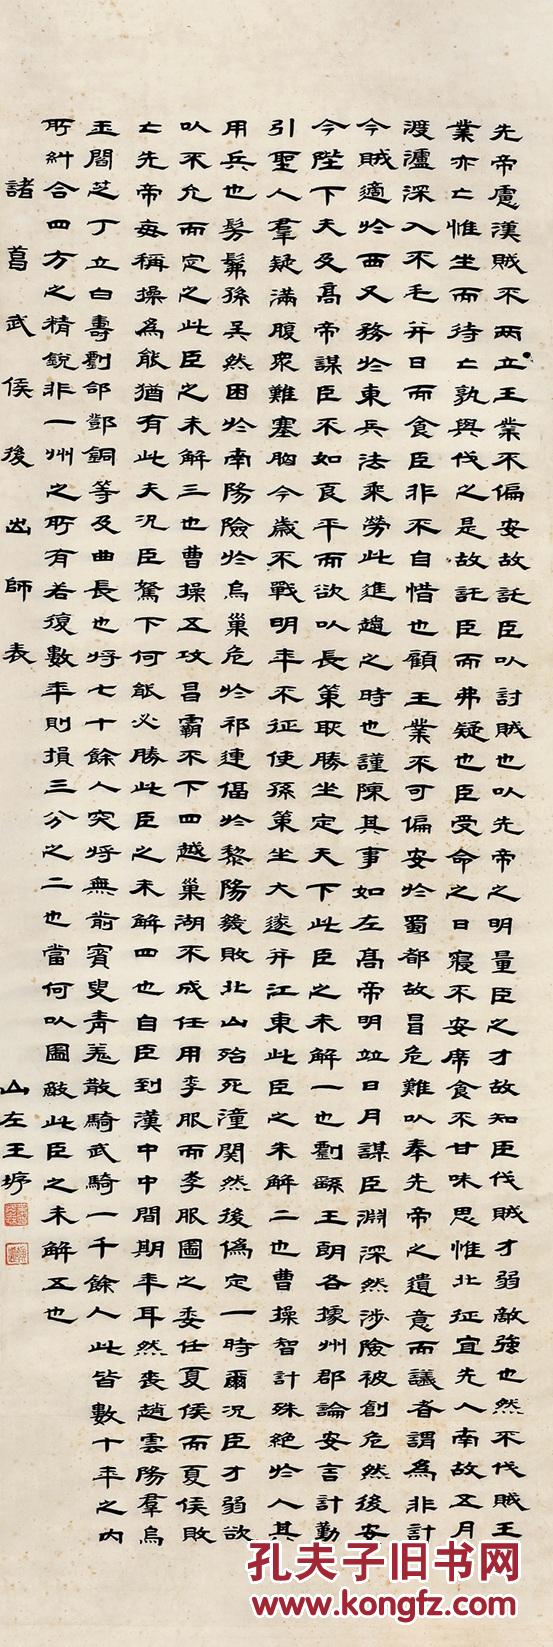 先帝慮漢賊不兩立王業不偏安故託臣以討賊也以先帝之明量臣之才故知臣伐賊才弱敵強也然不伐賊王
業亦亡惟坐而待亡孰與伐之是故託臣而弗疑也臣受命之日寢不安席食不甘味思惟北征宜先入南故五月
渡瀘深入不毛并日而食臣非不自惜也顧王業不可偏安於蜀都故冒危難以奉先帝之遺意而議者謂為非計
今賊適於西又務於東兵法乘勞此進趨之時也謹陳其事如左高帝明竝日月謀臣淵深然涉險被創危然後安
今陛下未及高帝謀臣不如良平而欲以長策取勝坐定天下此臣之未解一也劉繇王朗各據州郡論安言計動
引聖人羣疑滿腹衆難塞胸今歲不戰明年不征使孫策坐大遂并江東此臣之未解二也曹操智計殊絕於人其
用兵也髣髴孫吳然困於南陽險於烏巢危於祁連偪於黎陽幾敗北山殆死潼關然後偽定一時爾況臣才弱欲
以不危而定之此臣之未解三也曹操五攻昌霸不下四越巢湖不成任用李服而李服圖之委任夏侯而夏侯敗
亡先帝每稱操為能猶有此失況臣駑下何能必勝此臣之未解四也自臣到漢中中間期年耳然喪趙雲陽羣馬
玉閻芝丁立白壽劉郃鄧銅等及曲長屯將七十餘人突將無前賨叟青羌散騎武騎一千餘人此皆數十年之內
所糾合四方之精銳非一州之所有若復數年則損三分之二也當何以圖敵此臣之未解五也
諸葛武侯後出師表 山左王垿
孔夫子旧书网
www.kongfz.com